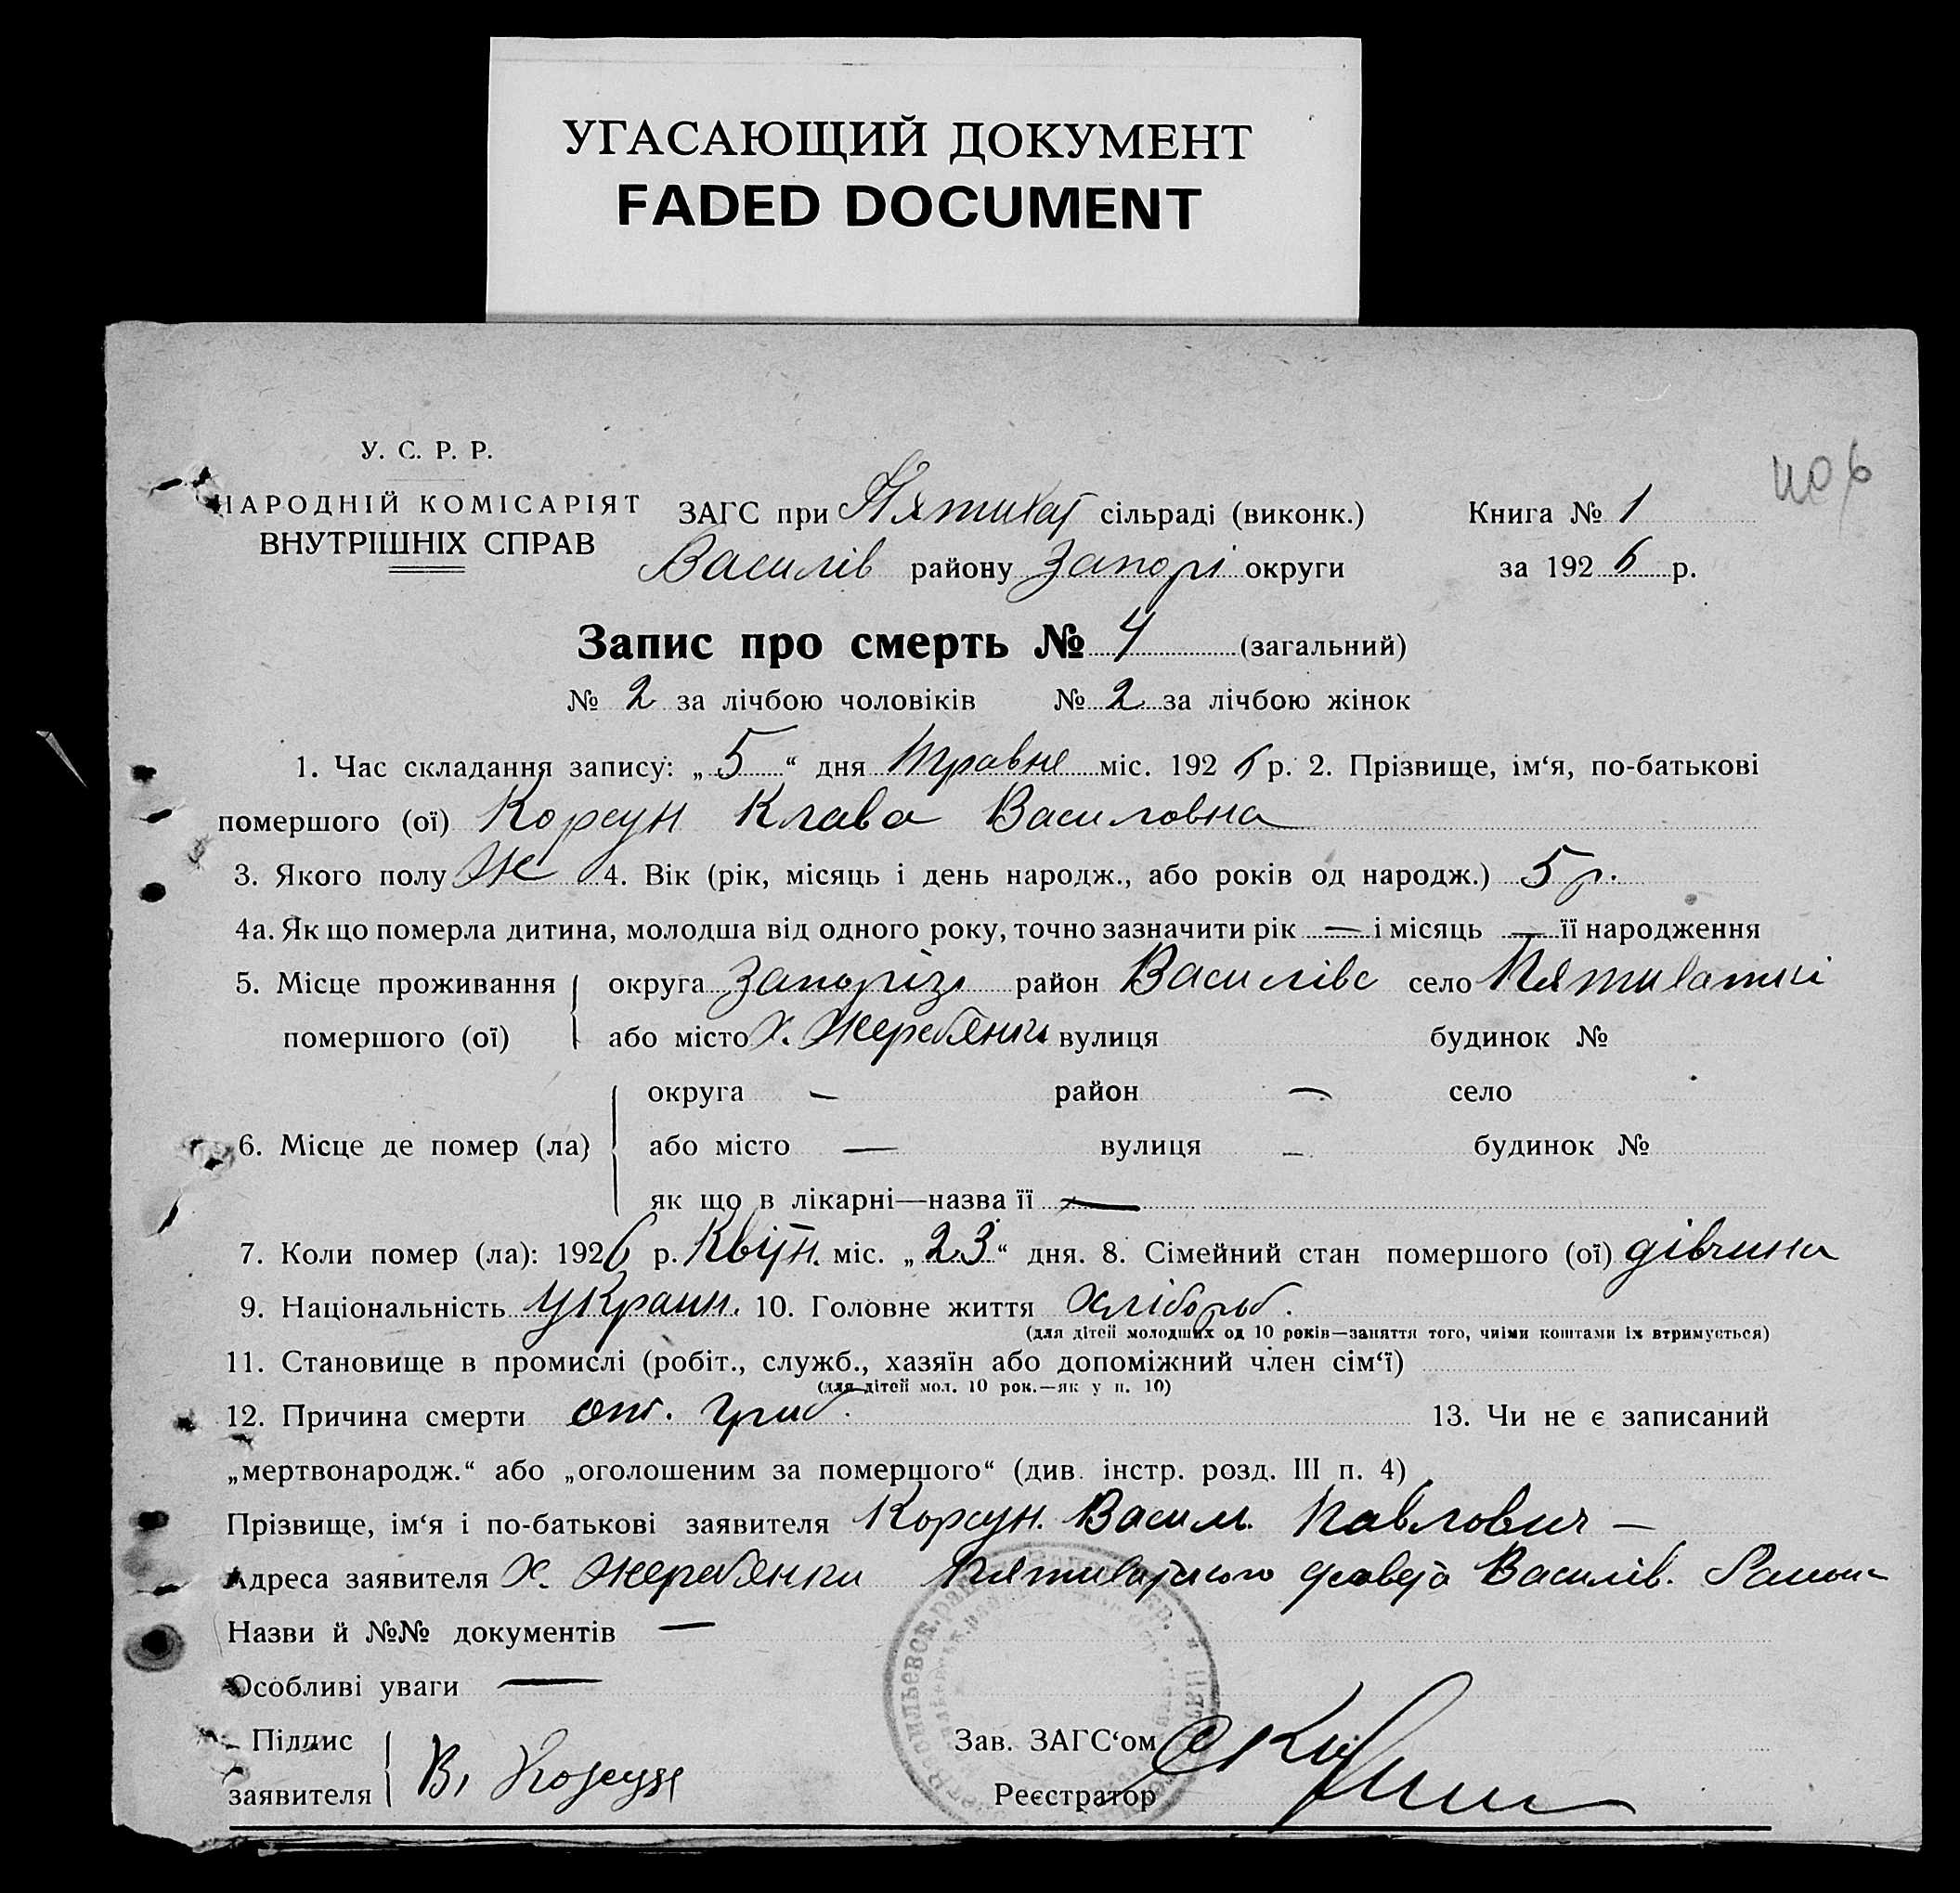 УГАСАЮЩИЙ ДОКУМЕНТ
FADED DOCUMENT
У. С. Р. Р.
НАРОДНІЙ КОМІСАРІЯТ
ВНУТРІШНІХ СПРАВ
ЗАГС при Пятихат сільраді (виконк.)
Василів району Запорі округи
Книга № 1
за 1926 р.
406
Запис про смерть № 4 (загальний)
№ 2 за лічбою чоловіків № 2 за лічбою жінок
1. Час складання запису: „5“ дня Травне міс. 1926 р. 2. Прізвище, ім‘я, по-батькові
помершого (ої) Корсун Клава Василовна
3. Якого полу Ж 4. Вік (рік, місяць і день народж., або років од народж.) 5 р.
4а. Як що померла дитина, молодша від одного року, точно зазначити рік — і місяць — її народження
5. Місце проживання округа Запорізь район Василівс село Пятихатки
помершого (ої) або місто х. Жеребянки вулиця будинок №
округа — район — село
6. Місце де помер (ла) або місто — вулиця — будинок №
як що в лікарні—назва її —
7. Коли помер (ла): 1926 р. Квітн. міс. „23“ дня. 8. Сімейний стан помершого (ої) дівчина
9. Національність Украин. 10. Головне життя хлібороб.
(для дітей молодших од 10 років—заняття того, чиїми коштами їх втримується)
11. Становище в промислі (робіт., служб., хазяїн або допоміжний член сім‘ї)
(для дітей мол. 10 рок.—як у п. 10)
12. Причина смерти от. гриб. 13. Чи не є записаний
„мертвонародж.“ або „оголошеним за помершого“ (див. інстр. розд. III п. 4)
Прізвище, ім‘я і по-батькові заявителя Корсун. Васил. Павлович —
Адреса заявителя х. Жеребянки Пятихатского Василів.
Назви й №№ документів —
Особливі уваги —
Підпис
заявителя В. Корсун
Зав. ЗАГС‘ом
Реєстратор